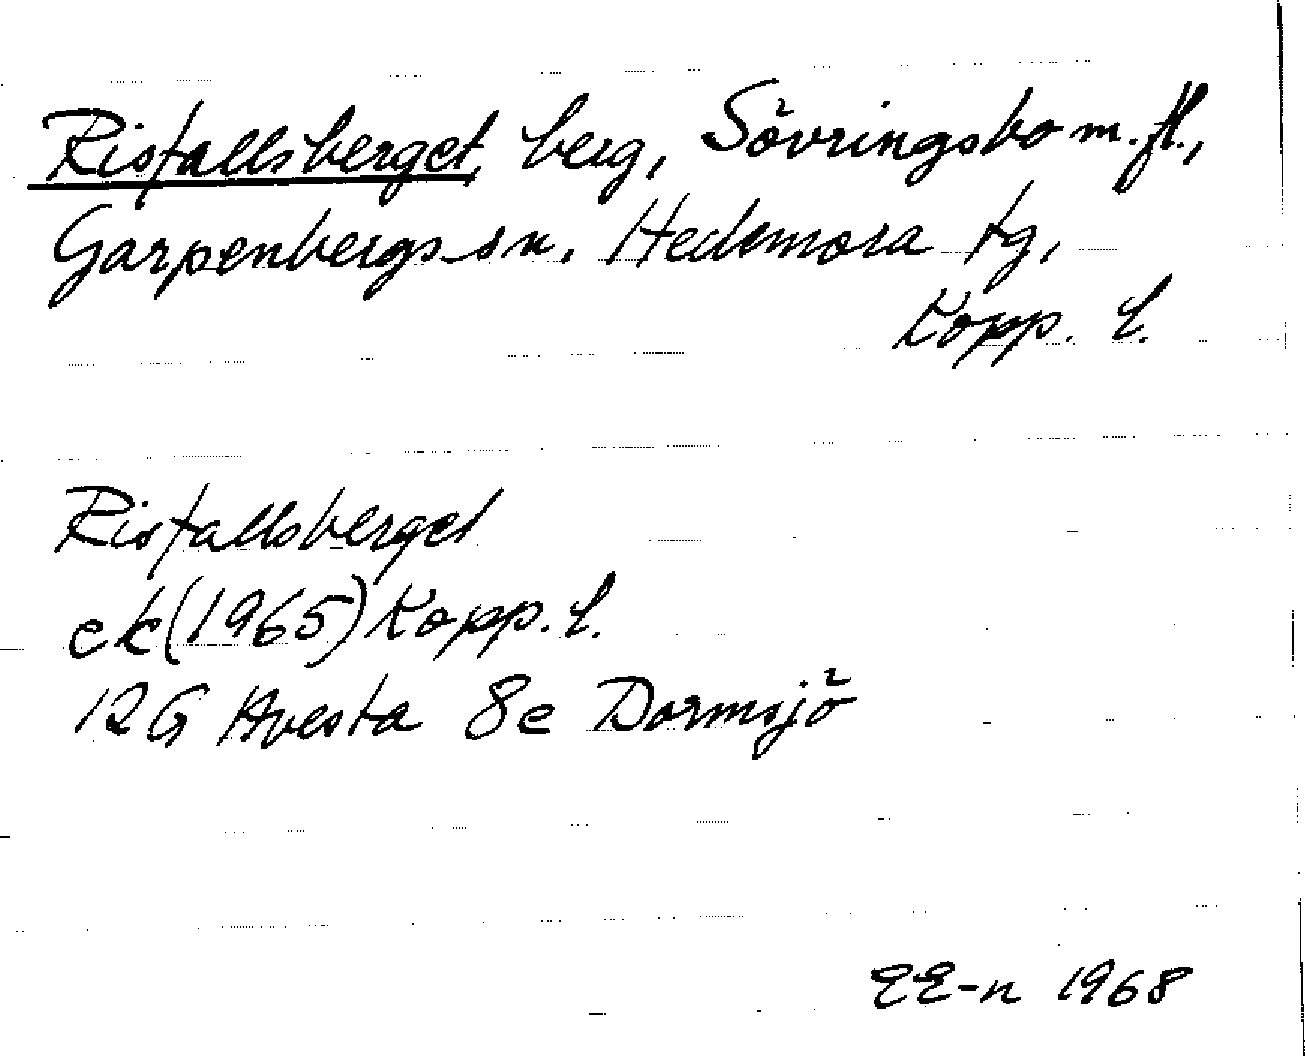 Risfallsberget, berg, Sövringsbo m.fl.,
Garpenbergs sn. Hedemora tg,
Kopp. l.
Risfallsberget
ek (1965) Kopp. l.
12G Avesta 8e Dormsjö
EE-n 1968